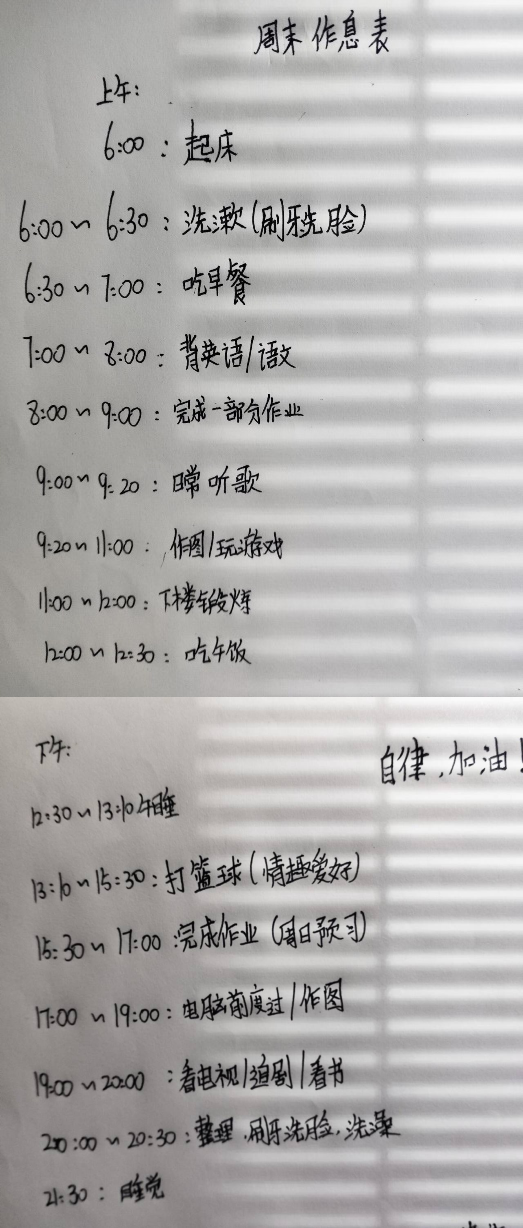 周末作息表
上午:
6:00 : 起床
6:00 ~ 6:30 : 洗漱(刷牙洗脸)
6:30 ~ 7:00 : 吃早餐
7:00 ~ 8:00 : 背英语/语文
8:00 ~ 9:00 : 完成一部分作业
9:00 ~ 9:20 : 日常听歌
9:20 ~ 11:00 : 作图/玩游戏
11:00 ~ 12:00 : 下楼锻炼
12:00 ~ 12:30 : 吃午饭
下午:
自律,加油!
12:30 ~ 13:10 午睡
13:10 ~ 15:30 : 打篮球(情趣爱好)
15:30 ~ 17:00 :完成作业(周日预习)
17:00 ~ 19:00 : 电脑前度过/作图
19:00 ~ 20:00 : 看电视/追剧/看书
20:00 ~ 20:30 : 整理,刷牙洗脸,洗澡
21:30 : 睡觉